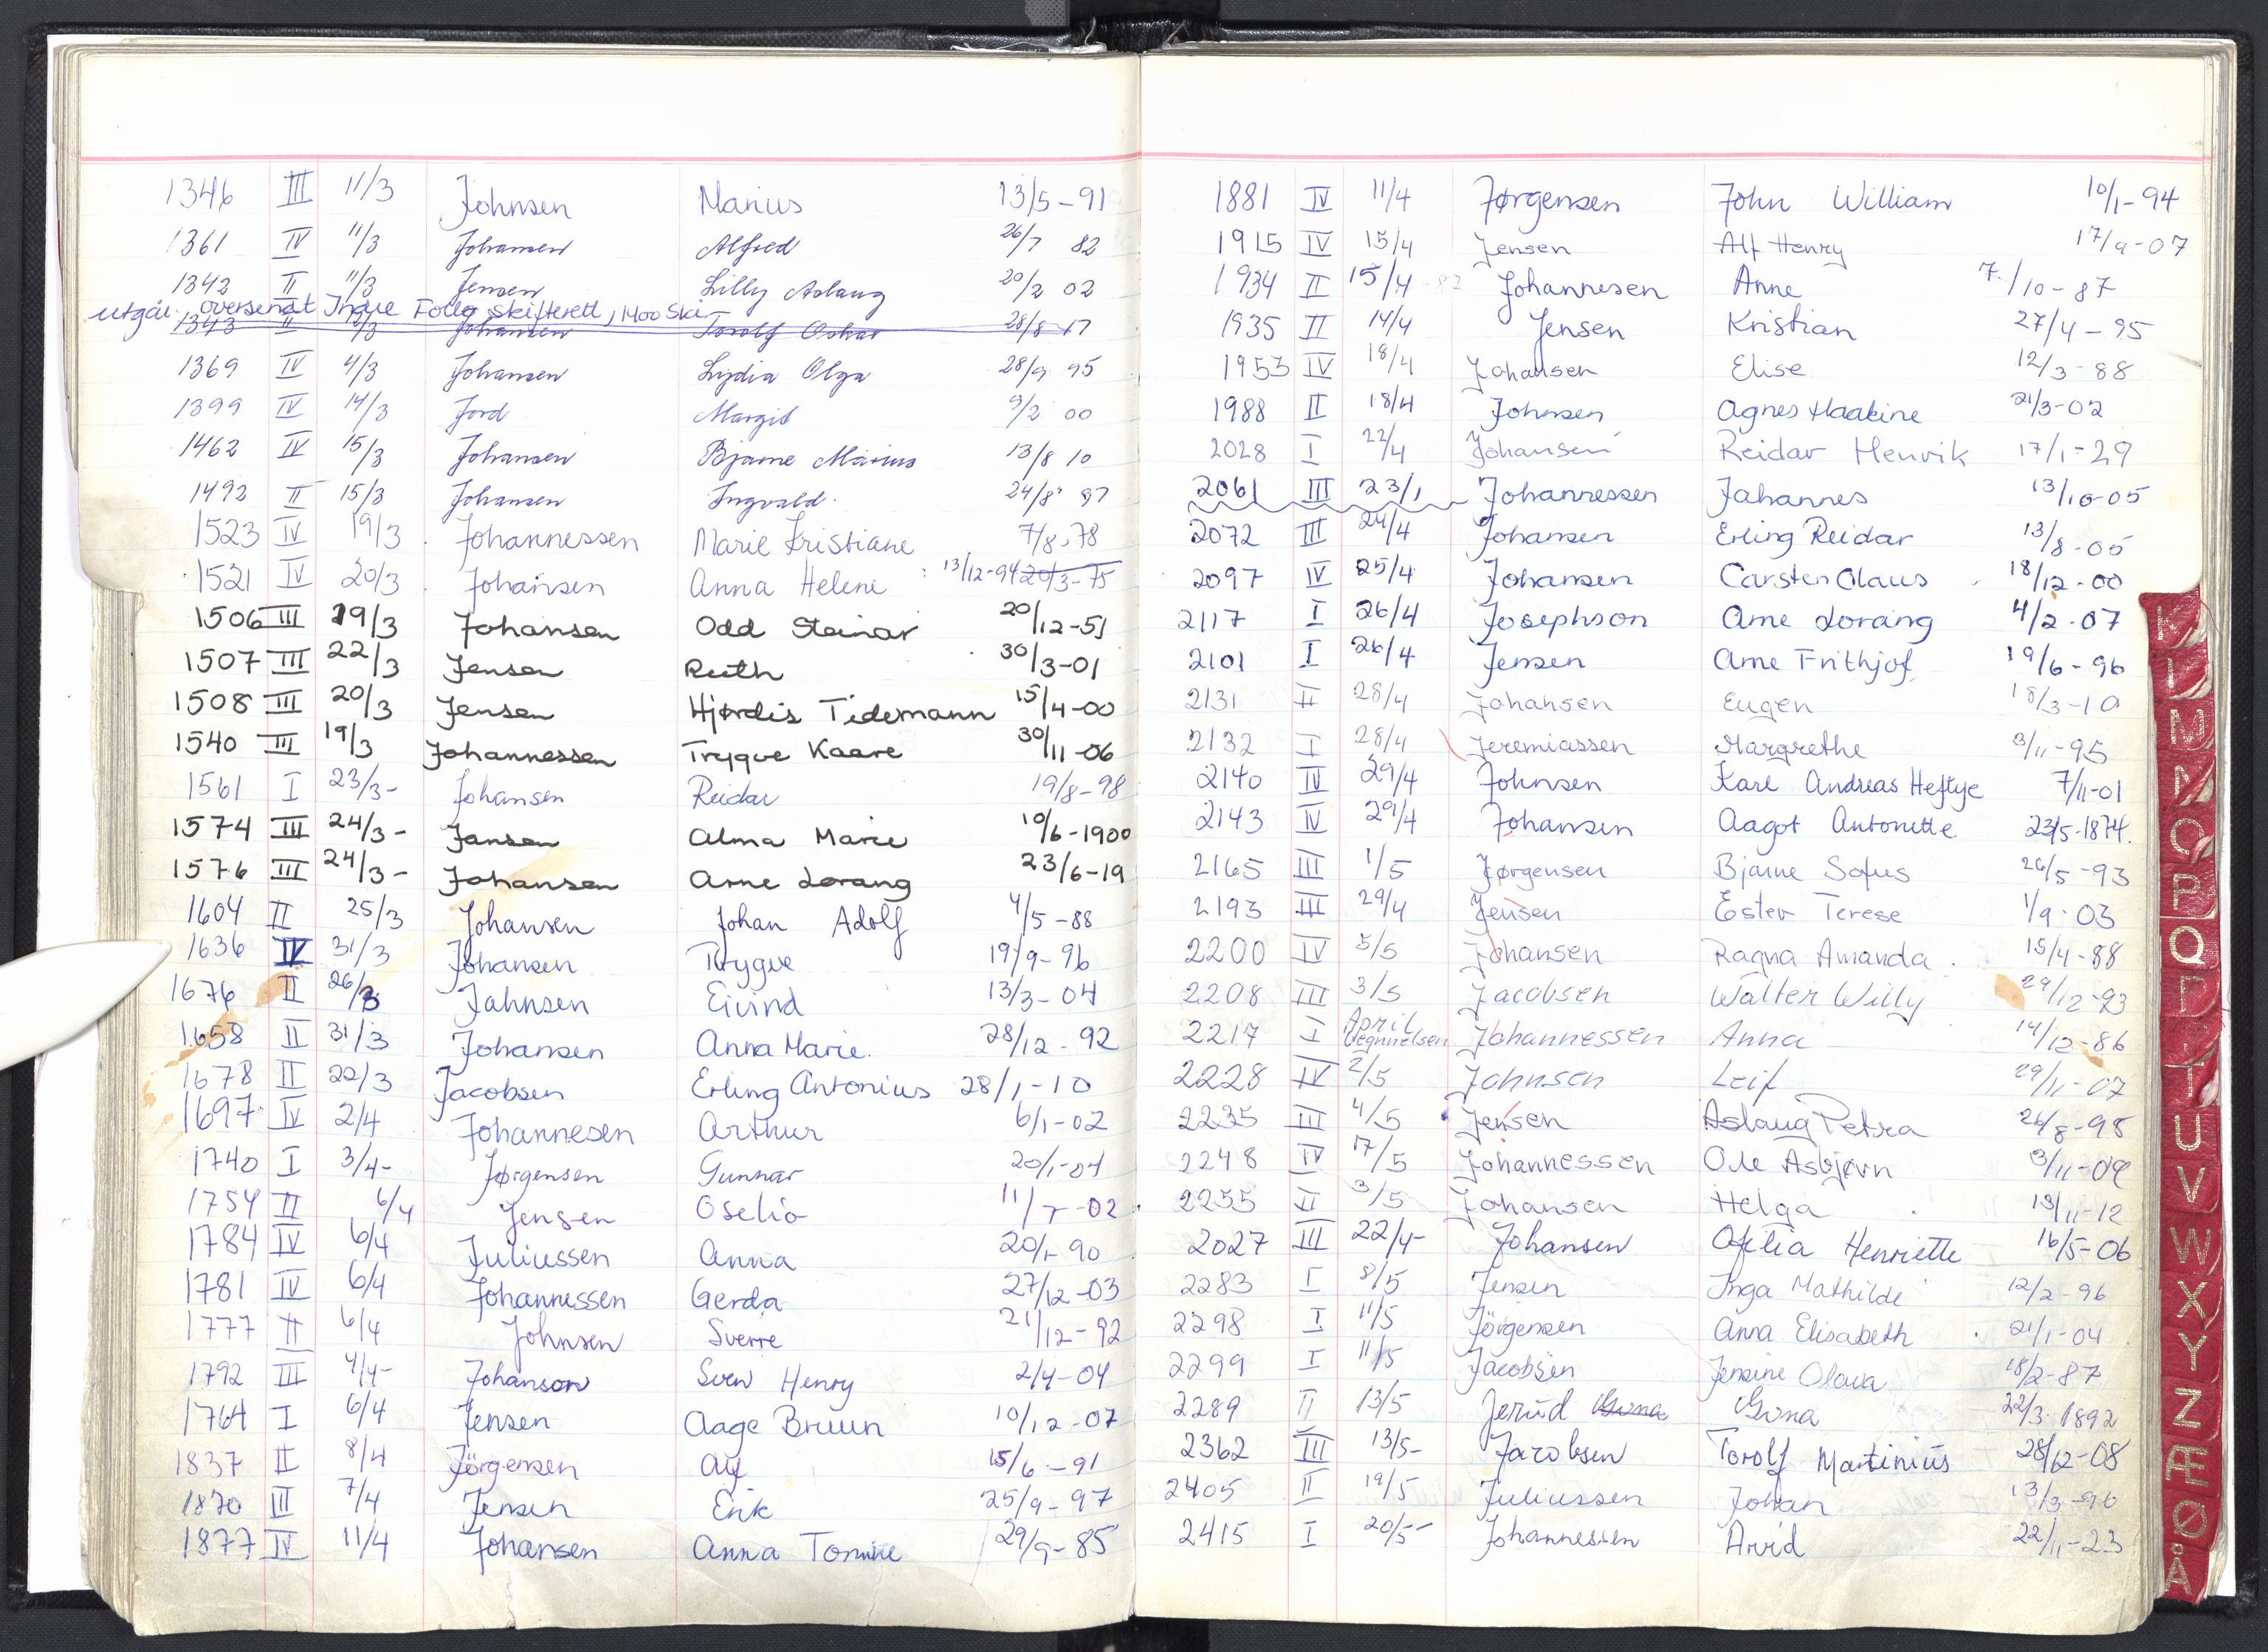 1346 III 11/3 Johnsen Marius 13/5-91
1361 IV 11/3 Johansen Alfred 26/7 82
1342 II 11/3 Jensen Lilly Aslaug 20/2 02
utgår. oversendt Indre Follo skifterett, 1400 Ski
1343 II Johansen Torolf Oskar 28/8 17
1369 IV 4/3 Johansen Lydia Olga 28/9 95
1399 IV 14/3 Jord Margit 9/2 00
1462 IV 15/3 Johansen Bjarne Marius 13/8 10
1492 II 15/3 Johansen Ingvald. 24/8 97
1523 IV 19/3 Johannessen Marie Kristiane 7/8-78
1521 IV 20/3 Johansen Anna Helene 13/12-94 20/3-75
1506 III 19/3 Johansen Odd Steinar 20/12-51
1507 III 22/3 Jensen Ruth 30/3-01
1508 III 20/3 Jensen Hjørdis Tidemann 15/4-00
1540 III 19/3 Johannessen Trygve Kaare 30/11-06
1561 I 23/3- Johansen Reidar 19/8-98
1574 III 24/3- Jansen Alma Marie 10/6-1900
1576 III 24/3- Johansen Arne Lorang 23/6-19
1604 II 25/3 Johansen Johan Adolf 4/5-88
1636 IV 31/3 Johansen Trygve 19/9-96
1676 II 26/3 Jahnsen Eivind 13/3-04
1658 II 31/3 Johansen Anna Marie. 28/12-92
1678 II 22/3 Jacobsen Erling Antonius 28/1-10
1697 IV 2/4 Johannesen Arthur 6/1-02
1740 I 3/4- Jørgensen Gunnar 20/1-04
1754 II 6/4 Jensen Oselio 11/7-02
1784 IV 6/4 Juliussen Anna 20/1-90
1781 IV 6/4 Johannessen Gerda 27/12-03
1777 II 6/4 Johnsen Sverre 21/12-92
1792 III 4/4- Johanson Sven Henry 2/4-04
1764 I 6/4 Jensen Aage Bruun 10/12-07
1837 II 8/4 Jörgensen Alf 15/6-91
1870 III 7/4 Jensen Erik 25/9-97
1877 IV 11/4 Johansen Anna Tomine 29/9-85
1881 IV 11/4 Jørgensen John William 10/1-94
1915 IV 15/4 Jensen Alf Henry 17/9-07
1934 II 15/4 Johannesen Anne 7./10-87
1935 II 14/4 Jensen Kristian 27/4-95
1953 IV 18/4 Johansen Elise 12/3-88
1988 II 18/4 Johnsen Agnes Haakine 21/3-02
2028 I 22/4 Johansen Reidar Henrik 17/1-29
2061 III 23/1 Johannessen Johannes 13/10-05
2072 III 24/4 Johansen Erling Reidar 13/8-05
2097 IV 25/4 Johansen Carsten Olaus 18/12-00
2117 I 26/4 Josephson Arne Lorang 4/2-07
2101 I 26/4 Jensen Arne Frithjof 19/6-96
2131 II 28/4 Johansen Eugen 18/3-10
2132 I 28/4 Jeremiassen Margrethe 3/11-95
2140 IV 29/4 Johnsen Karl Andreas Heftye 7/11-01
2143 IV 29/4 Johansen Aagot Antonette 23/5-1874.
2165 III 1/5 Jørgensen Bjarne Sofus 26/5-93
2193 III 29/4 Jensen Ester Terese 1/9-03
2200 IV 5/5 Johansen Ragna Amanda. 15/4-88
2208 III 3/5 Jacobsen Walter Willy 29/12-93
2217 I April Johannessen Anna 14/12-86
2228 IV 2/5 Johnsen Leif 29/11-07
2235 III 4/5 Jensen Aslaug Petra 26/8-98
2248 IV 17/5 Johannessen Ole Asbjørn 3/11-09
2255 II 3/5 Johansen Helga 13/11-12
2027 III 22/4- Johansen Ofelia Henriette 16/5-06
2283 I 8/5 Jensen Inga Mathilde 12/2-96
2298 I 11/5 Jörgensen Anna Elisabeth 21/1-04
2299 I 11/5 Jacobsen Jensine Olava 18/2-87
2289 II 13/5 Jerud Gina Gina 22/3 1892
2362 III 13/5- Jacobsen Torolf Martinius 28/12-08
2405 II 19/5 Juliussen Johan 13/3-90
2415 I 20/5- Johannessen Arvid 22/11-23
K
L
M
N
O
P
Q
R
T
U
V
W
X
Y
Z
Æ
Ø
Å